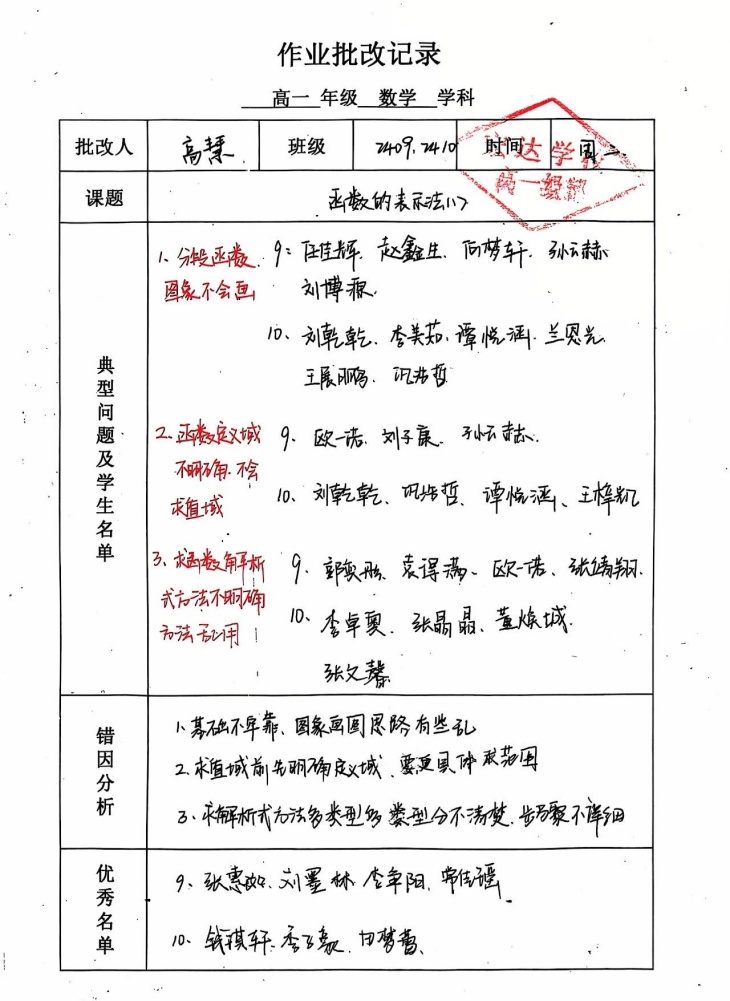 作业批改记录
高一 年级 数学 学科
批改人 高慧 班级 2409.2410 时间 周一
宏达学校
高一级部
课题 函数的表示法(1)
典型问题及学生名单
1、分段函数 9: 任佳辉、赵鑫生、何梦轩、孙云赫、
图象不会画 刘博源、
10、刘乾乾、李美茹、谭悦涵、兰恩光
王展鹏、巩浩哲
2、函数定义域 9、欧一诺、刘子康、孙云赫、
不明确.不会
求值域 10、刘乾乾、巩浩哲、谭悦涵、王梓凯
3、求函数解析 9、郭奕彤、袁得满、欧一诺、张靖翔、
式方法不明确
方法乱用 10、李卓奥、张晶晶、董焕城、
张文馨
错因分析
1、基础不牢靠、图象画图思路有些乱
2、求值域前先明确定义域、要更具体求范围
3、求解析式方法多类型多 类型分不清楚.步骤不详细
优秀名单
9、张惠如、刘墨林、李卓阳、常佳瑶、
10、钱琪轩、李子豪、田梦蕾、